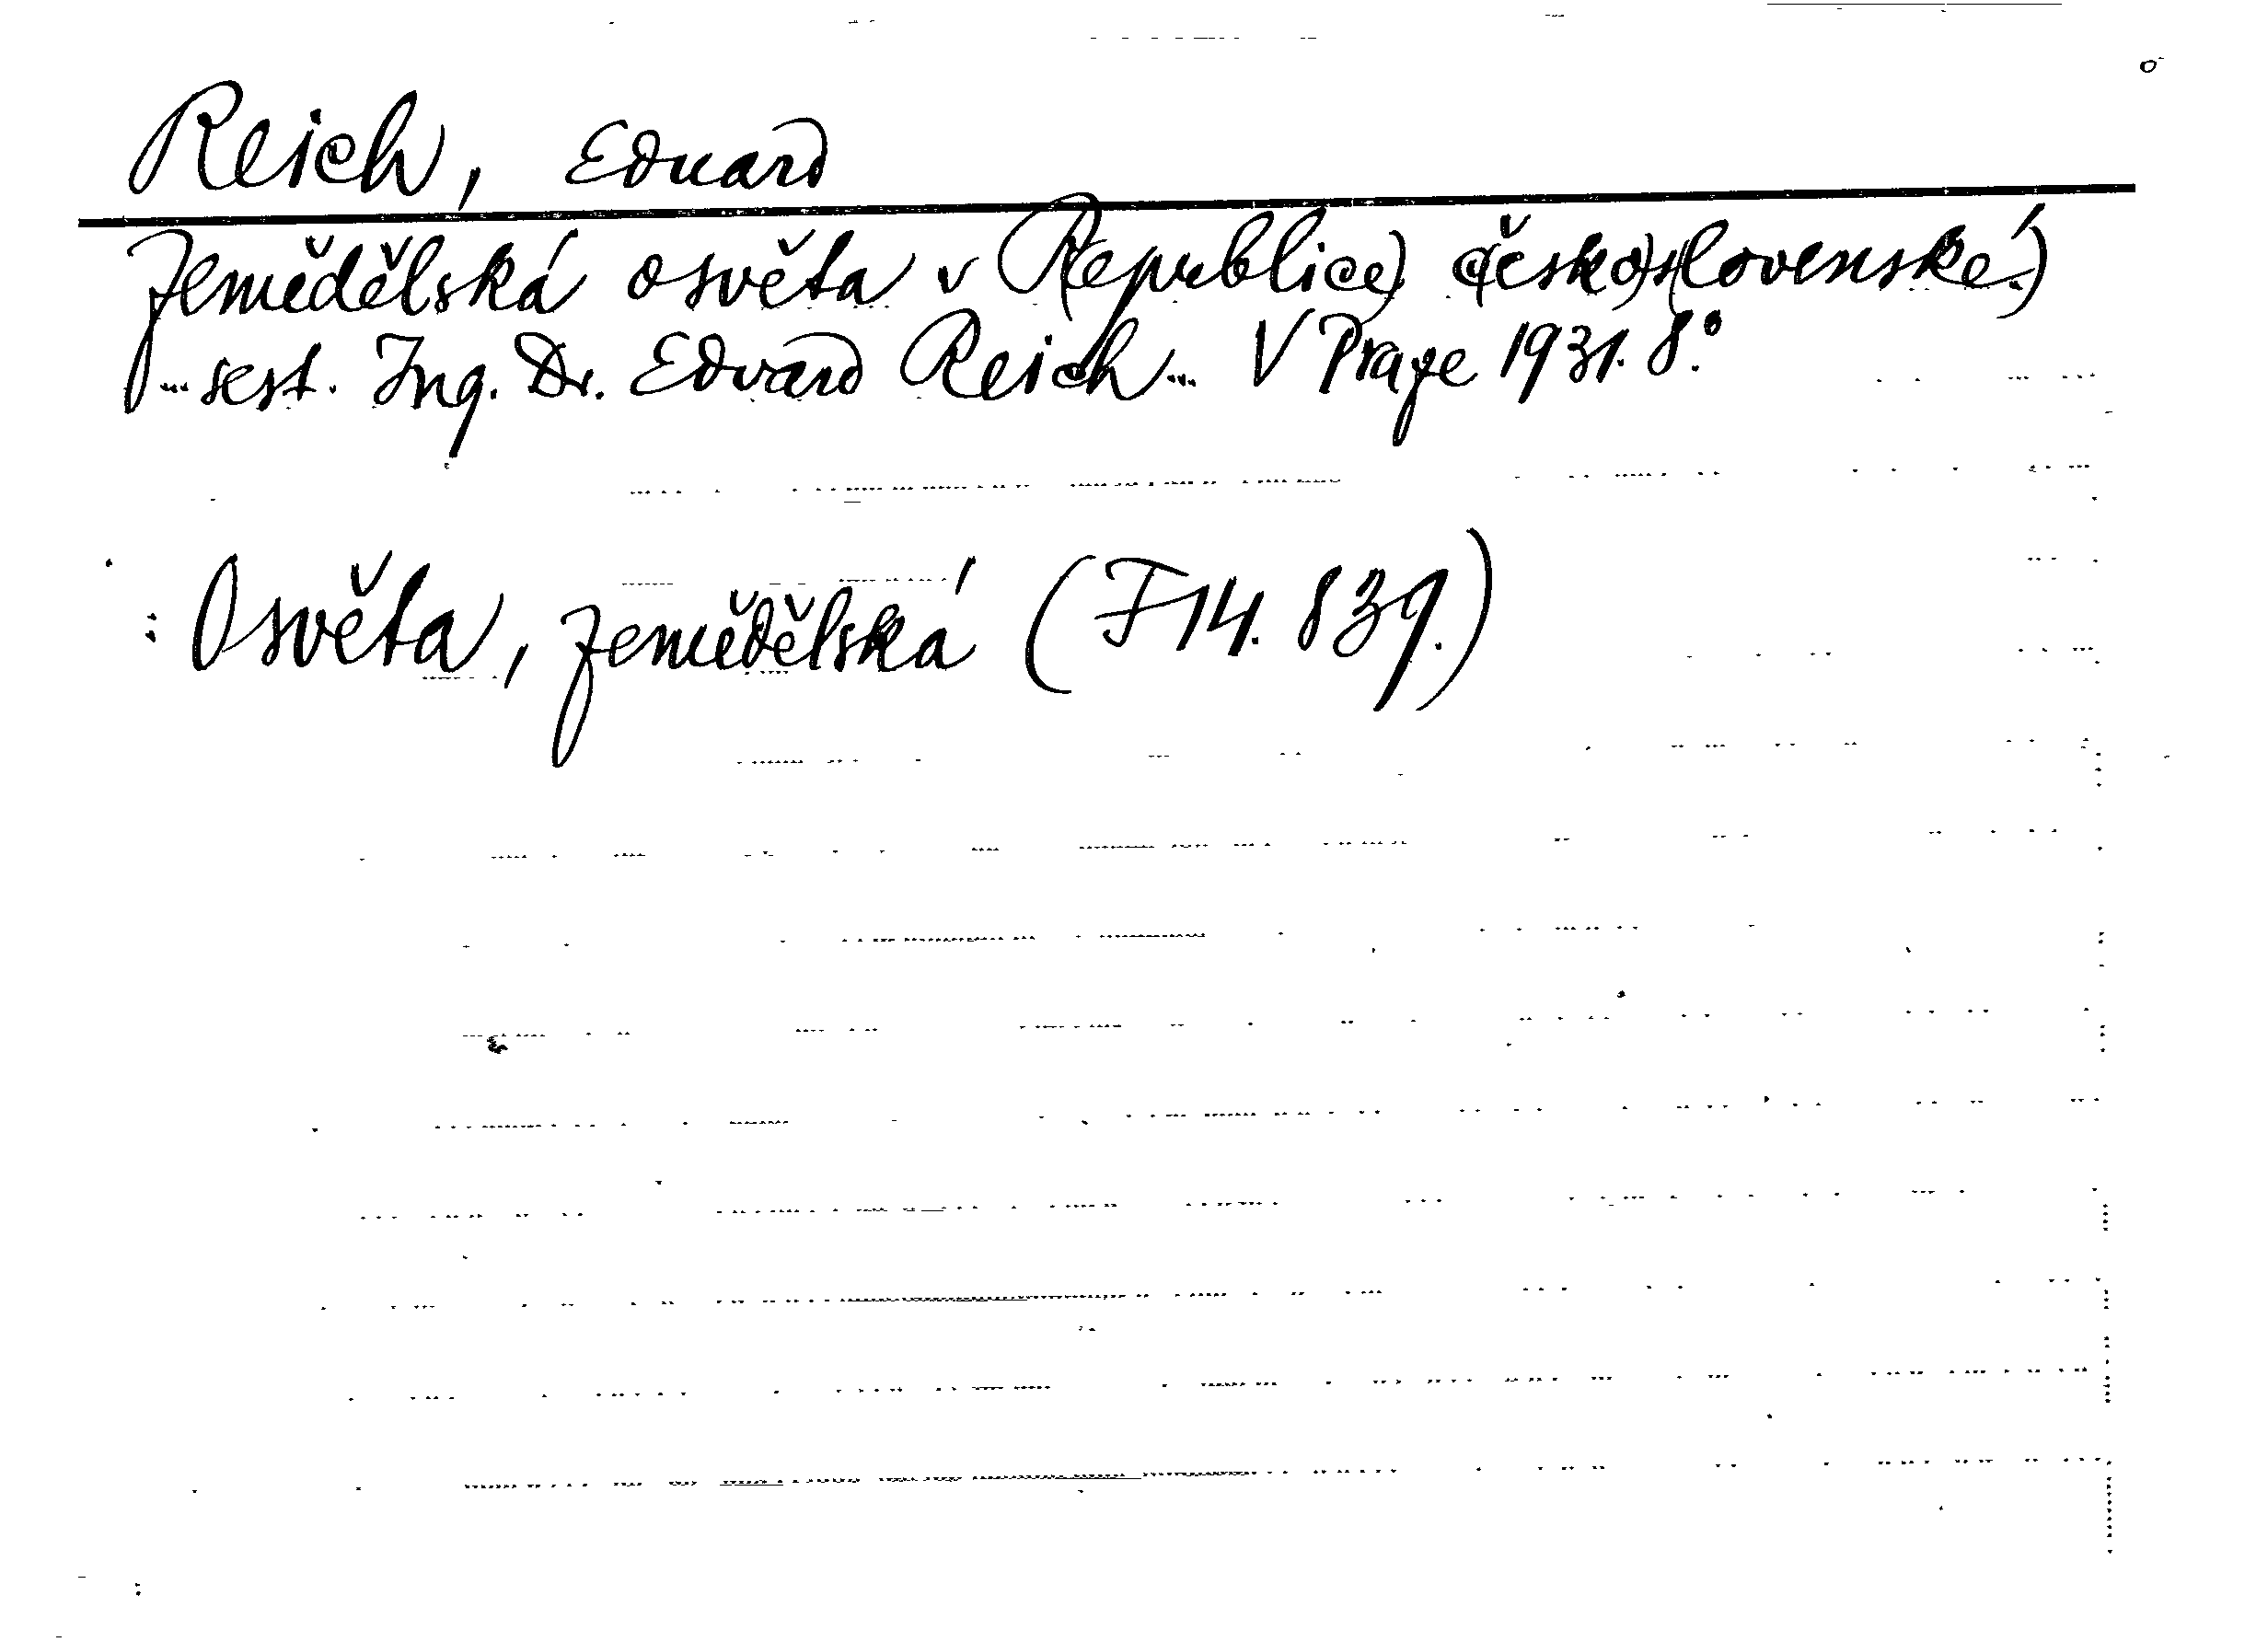 Reich, Eduard
Zemědělská osvěta v (Republice) (česko)s(lovenské.)
... sest. Ing. Dr. Edvard Reich... V Praze 1931. 8.°
: Osvěta, zemědělská (F 14. 839.)